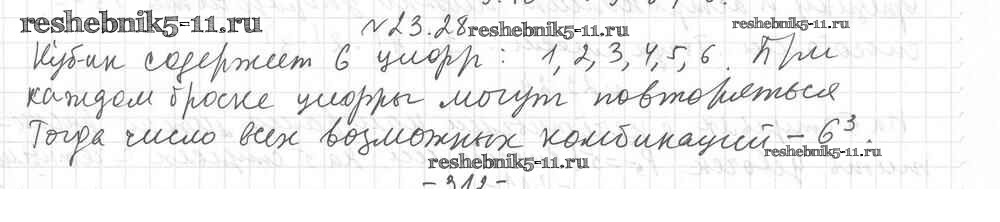 reshebnik5-11.ru
№23.28 reshebnik5-11.ru reshebnik5-11.ru
Кубик содержет 6 цифр: 1, 2, 3, 4, 5, 6. При
каждом броске цифры могут повторяться
Тогда число всех возможных комбинаций – 6³.
reshebnik5-11.ru
reshebnik5-11.ru
- 312 -